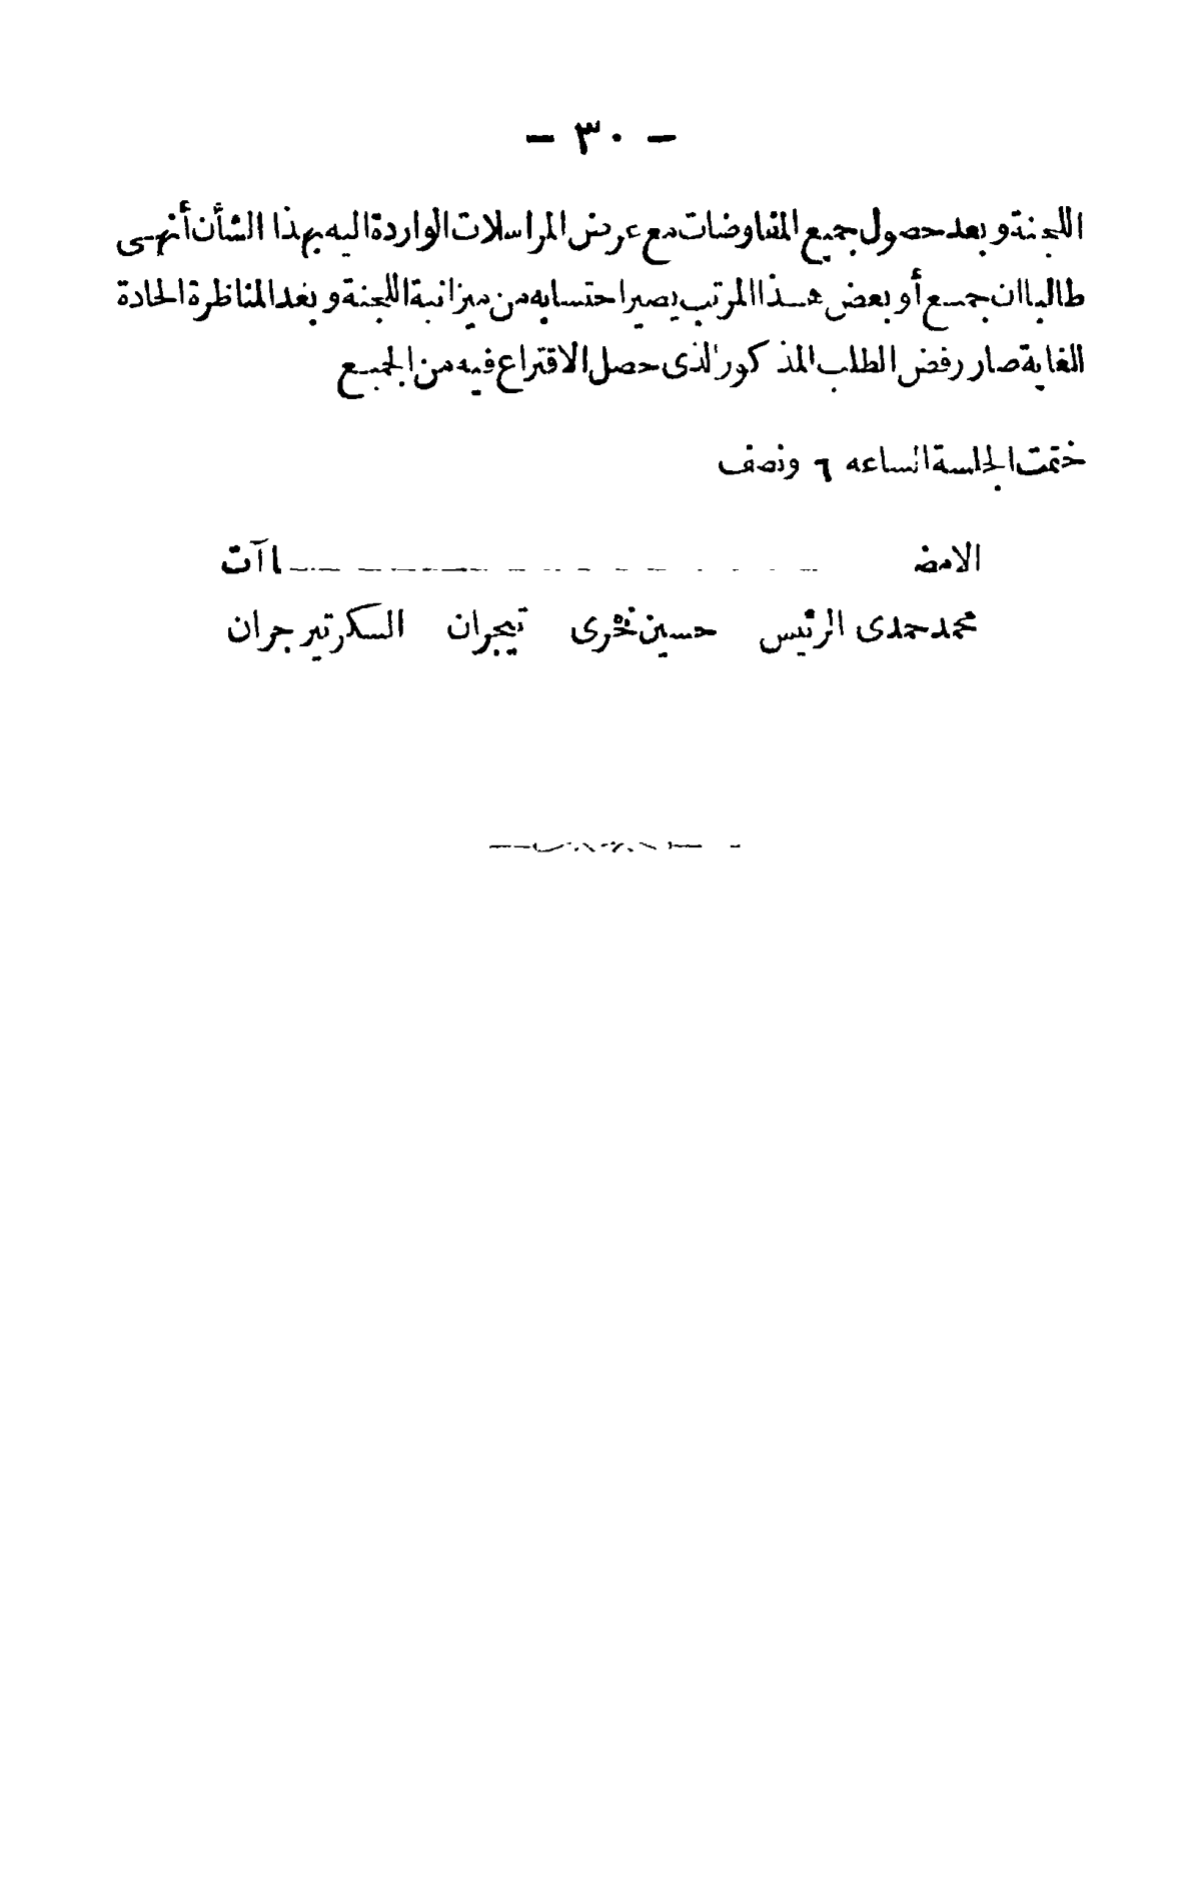 — ٣٠ —
اللجنة وبعد حصول جميع المفاوضات مع عرض المراسلات الواردة اليه بهذا الشأن أنهى
طالبا ان جميع أو بعض هذا المرتب يصير احتسابه من ميزانية اللجنة وبعد المناظرة الحادة
الغاية صار رفض الطلب المذكور الذى حصل الاقتراع فيه من الجميع
ختمت الجلسة الساعه ٦ ونصف
الامضاآت
محمد حمدى الرئيس حسين فخرى تيجران السكرتير جران